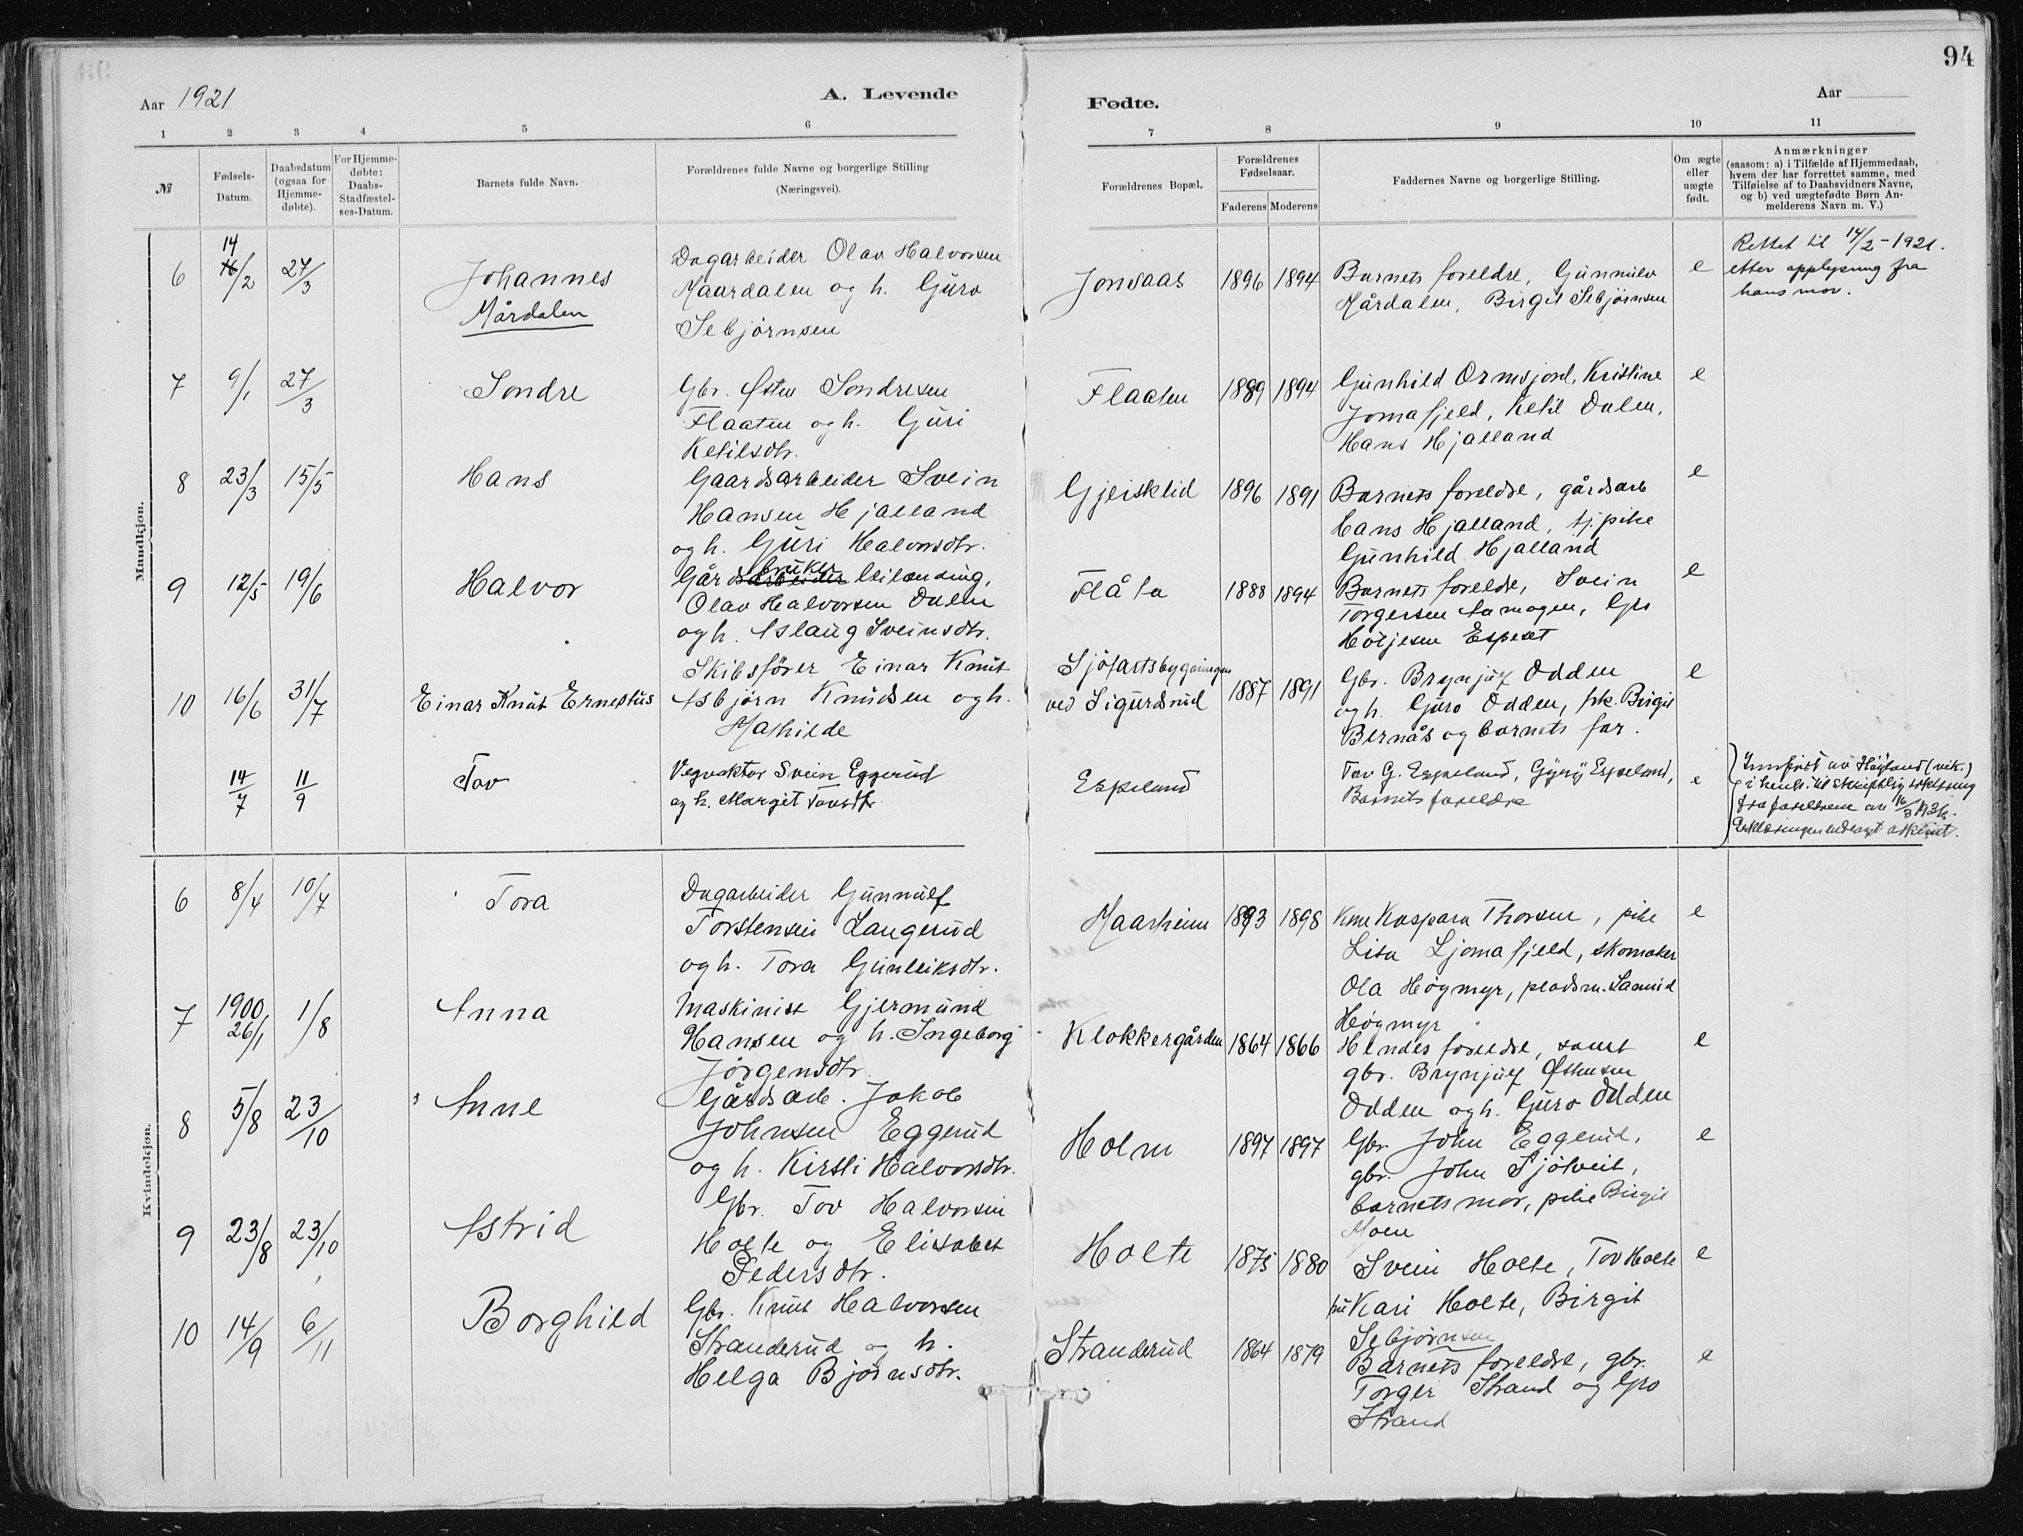 94
Aar 1921
A. Levende
Fødte.
Aar
1 2 3 4 5 6 7 8 9 10 11
№
Fødsels-
Datum.
Daabsdatum
(ogsaa for
Hjemme-
døbte).
For Hjemme-
døbte:
Daabs-
Stadfæstel-
ses-Datum.
Barnets fulde Navn.
Forældrenes fulde Navne og borgerlige Stilling
(Næringsvei).
Forældrenes Bopæl.
Forældrenes
Fødselsaar.
Faderens Moderens
Faddernes Navne og borgerlige Stilling.
Om ægte
eller
uægte
født.
Anmærkninger
(saasom: a) i Tilfælde af Hjemmedaab,
hvem der har forrettet samme, med
Tilføielse af to Daabsvidners Navne,
og b) ved uægtefødte Børn An-
melderens Navn m. V.)
Mandkjøn.
6 14/2 27/3
Johannes
Mårdalen
Dagarbeider Olav Halvorsen
Maardalen og h. Guro
Sebjørnsen
Jonsaas 1896 1894
Barnets foreldre, Gunnulv
Mårdalen, Birgit Sebjørnsen
e
Rettet til 14/2-1921.
etter opplysning fra
hans mor.
7 9/1 27/3
Sondre
Gbr. Østen Sondresen
Flaaten og h. Guri
Ketilsdtr.
Flaaten 1889 1894
Gunhild Ormsjord, Kristine
Jomafjeld, Ketil Dalen,
Hans Hjalland
e
8 23/3 15/5
Hans
Gaardsarbeider Svein
Hansen Hjalland
og h. Guri Halvorsdtr.
Gjeisklid 1896 1891
Barnets foreldre, gårdsarb
Hans Hjalland, tj.pike
Gunhild Hjalland
e
9 12/5 19/6
Halvor
bruker
Gårdsarbeider leilending,
Olav Halvorsen Dalen
og h. Aslaug Sveinsdtr.
Flåta 1888 1894
Barnets foreldre, Svein
Torgersen Aamogen, Gro
Høljesen Espeset
e
10 16/6 31/7
Einar Knut Ernestus
Skibsfører Einar Knut
Asbjørn Knudsen og h.
Mathilde
Sjøfartsbygningen
ved Sigurdsrud 1887 1891
Gbr. Brynjulf Odden
og h. Guro Odden, pk. Birgit
Bernås og barnets far.
e
14/7 11/9
Tov
Vegvokter Svein Eggerud
og h. Margit Tovsdtr.
Espeland
Tov G. Espeland, Gyrij Espeland,
Barnets foreldre
e
Innført av Høyland (vik.)
i henh. til skriftlig erklæring
fra foreldrene av
Erklæringen vedlagt
Kvindekjøn.
6 8/4 10/7
Tora
Dagarbeider Gunnulf
Torstensen Langerud
og h. Tora Gunleiksdtr.
Maarheim 1893 1898
Kaspara Thorsen, pike
Lisa Ljomafjeld, skomaker
Ola Høgmyr, pladsm.
Høgmyr
e
7 1900 26/1 1/8
Anna
Maskinist Gjermund
Hansen og h. Ingeborg
Jörgensdtr.
Klokkergården 1864 1866
Hendes foreldre, samt
gbr. Brynjulf Østensen
Odden og h. Guro Odden
e
8 5/8 23/10
Anne
Gårdsarb. Jakob
Johnsen Eggerud
og h. Kirsti Halvorsdtr.
Holm 1897 1897
Gbr. John Eggerud,
gbr. John Sjøtveit,
barnets mor, pike Birgit
Moen
e
9 23/8 23/10
Astrid
Gbr. Tov Halvorsen
Holte og Elisabet
Pedersdtr.
Holte 1875 1880
Svein Holte, Tov Holte
fru Kari Holte, Birgit
Sebjørnsen
e
10 14/9 6/11
Borghild
Gbr. Knut Halvorsen
Stranderud og h.
Helga Bjørnsdtr.
Stranderud 1864 1879
Barnets foreldre, gbr.
Torger Strand og Gro
Strand
e